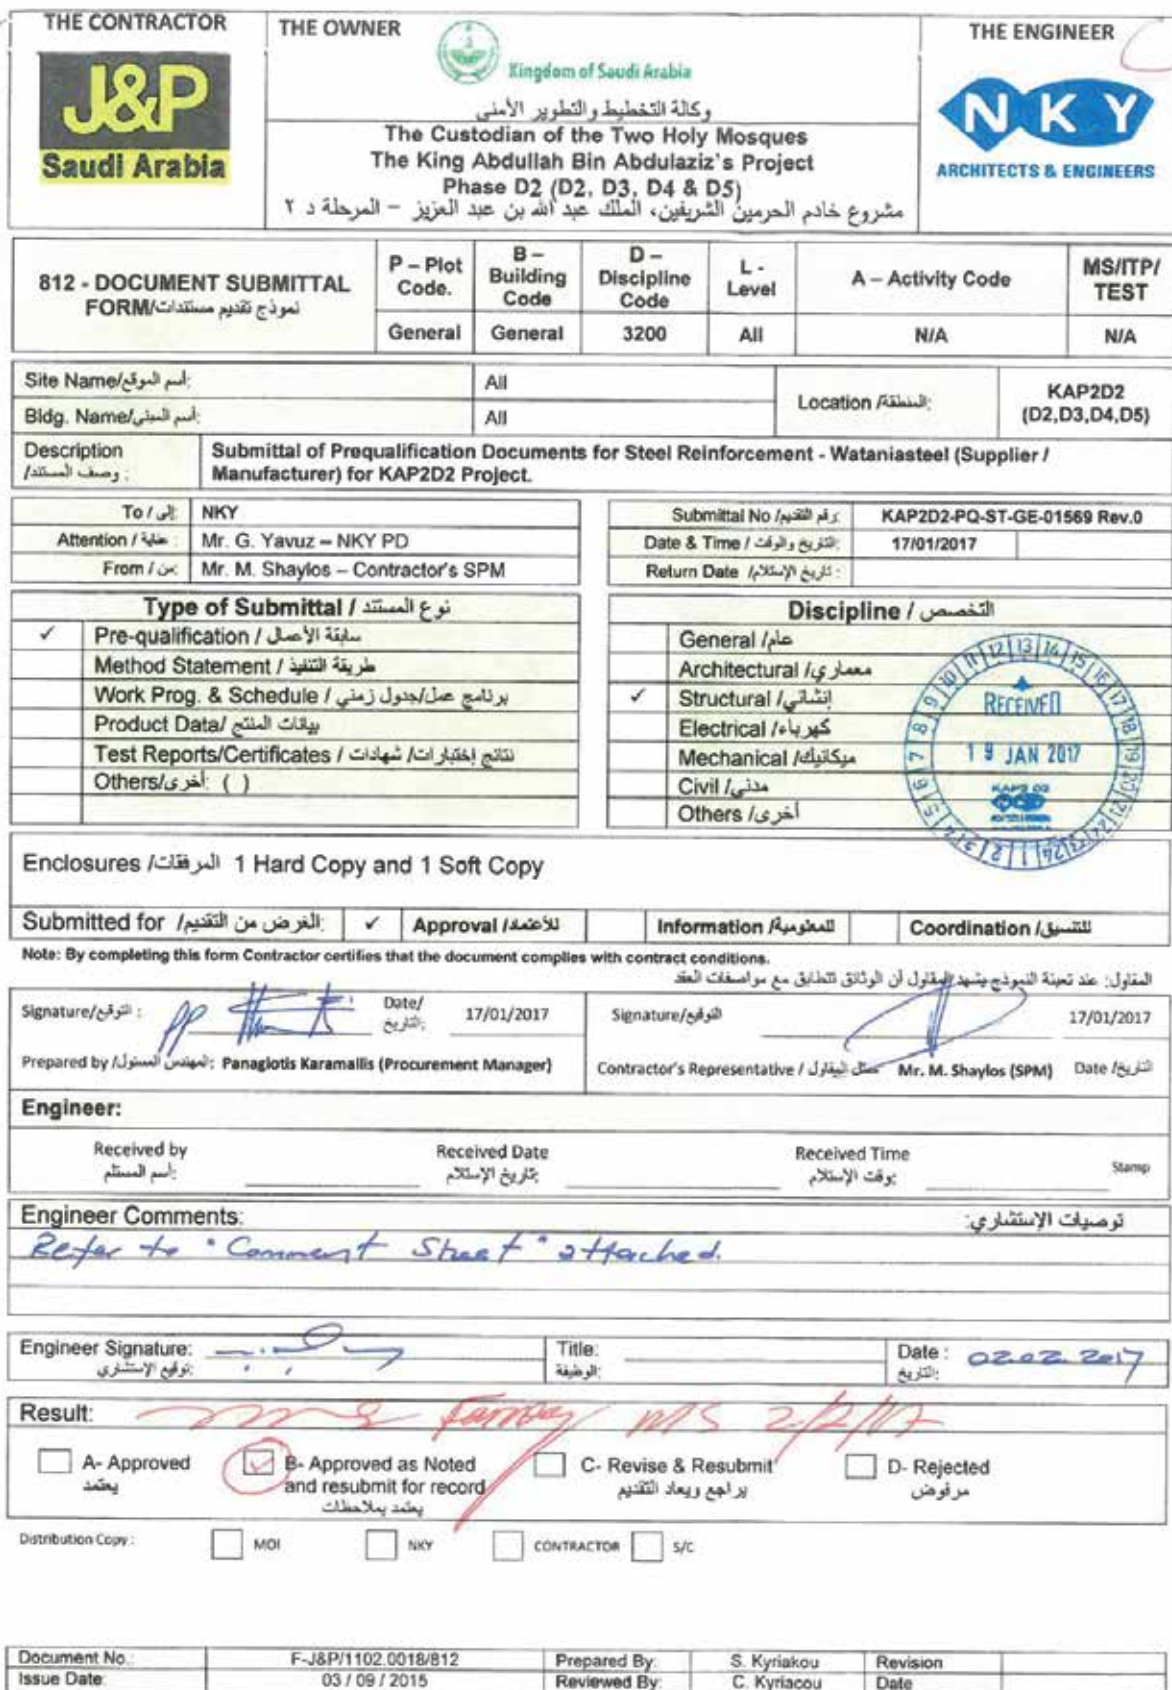 THE CONTRACTOR
J&P
Saudi Arabia
THE OWNER
Kingdom of Saudi Arabia
وكالة التخطيط والتطوير الأمني
The Custodian of the Two Holy Mosques
The King Abdullah Bin Abdulaziz's Project
Phase D2 (D2, D3, D4 & D5)
مشروع خادم الحرمين الشريفين، الملك عبد الله بن عبد العزيز – المرحلة د ٢
THE ENGINEER
NKY
ARCHITECTS & ENGINEERS
812 - DOCUMENT SUBMITTAL
FORM/نموذج تقديم مستندات
P – Plot Code.
B – Building Code
D – Discipline Code
L - Level
A – Activity Code
MS/ITP/ TEST
General General 3200 All N/A N/A
Site Name/أسم الموقع: All
Bldg. Name/أسم المبنى: All
Location /المنطقة: KAP2D2 (D2,D3,D4,D5)
Description /وصف المستند :
Submittal of Prequalification Documents for Steel Reinforcement - Wataniasteel (Supplier / Manufacturer) for KAP2D2 Project.
To / إلى: NKY
Attention / عناية : Mr. G. Yavuz – NKY PD
From / من: Mr. M. Shaylos – Contractor's SPM
Submittal No /رقم التقديم: KAP2D2-PQ-ST-GE-01569 Rev.0
Date & Time / التاريخ والوقت: 17/01/2017
Return Date /تاريخ الإستلام :
Type of Submittal / نوع المستند
✓ Pre-qualification / سابقة الأعمال
Method Statement / طريقة التنفيذ
Work Prog. & Schedule / برنامج عمل/جدول زمني
Product Data/ بيانات المنتج
Test Reports/Certificates / نتائج إختبارات/ شهادات
Others/أخرى: ( )
Discipline / التخصص
General /عام
Architectural /معماري
✓ Structural /إنشائي
Electrical /كهرباء
Mechanical /ميكانيك
Civil /مدني
Others /أخرى
RECEIVED
19 JAN 2017
KAP2 D2
Enclosures /المرفقات 1 Hard Copy and 1 Soft Copy
Submitted for /الغرض من التقديم: ✓ Approval /للأعتماد Information /للمعلومية Coordination /للتنسيق
Note: By completing this form Contractor certifies that the document complies with contract conditions.
المقاول: عند تعبئة النموذج يشهد المقاول أن الوثائق تتطابق مع مواصفات العقد
Signature/التوقيع : Date/ التاريخ: 17/01/2017
Signature/التوقيع 17/01/2017
Prepared by /المهندس المسئول: Panagiotis Karamallis (Procurement Manager)
Contractor's Representative / ممثل المقاول Mr. M. Shaylos (SPM) Date /التاريخ
Engineer:
Received by أسم المستلم:
Received Date تاريخ الإستلام:
Received Time وقت الإستلام:
Stamp
Engineer Comments: توصيات الإستشاري:
Refer to "Comment Sheet" attached.
Engineer Signature: توقيع الإستشاري:
Title: الوظيفة:
Date : التاريخ: 02.02.2017
Result: 2/2/17
A- Approved يعتمد
✓ B- Approved as Noted and resubmit for record يعتمد بملاحظات
C- Revise & Resubmit يراجع ويعاد التقديم
D- Rejected مرفوض
Distribution Copy : MOI NKY CONTRACTOR S/C
Document No.: F-J&P/1102.0018/812 Prepared By: S. Kyriakou Revision
Issue Date: 03 / 09 / 2015 Reviewed By: C. Kyriacou Date